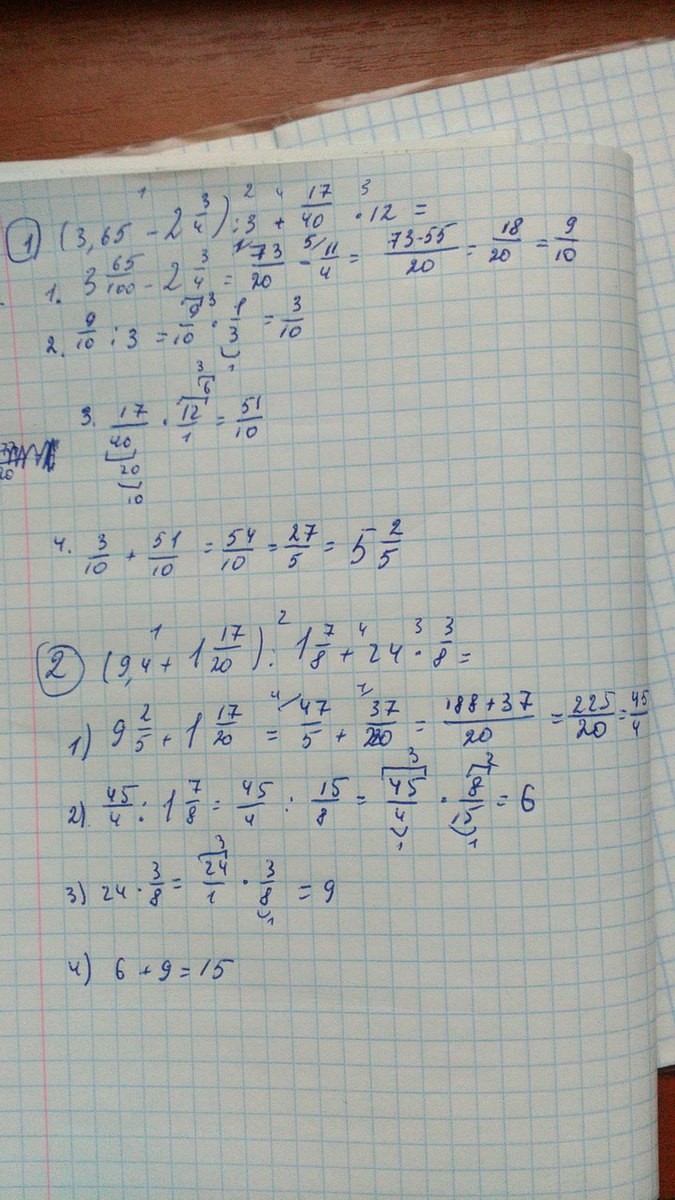 1) (3,65 - 2 3/4) : 3 + 17/40 · 12 =
1. 3 65/100 - 2 3/4 = 73/20 - 11/4 = 73-55/20 = 18/20 = 9/10
2. 9/10 : 3 = 9/10 · 1/3 = 3/10
3. 17/40 · 12/1 = 51/10
4. 3/10 + 51/10 = 54/10 = 27/5 = 5 2/5
2) (9,4 + 1 17/20) : 1 7/8 + 24 · 3/8 =
1) 9 2/5 + 1 17/20 = 47/5 + 37/20 = 188+37/20 = 225/20 = 45/4
2) 45/4 : 1 7/8 = 45/4 : 15/8 = 45/4 · 8/15 = 6
3) 24 · 3/8 = 24/1 · 3/8 = 9
4) 6 + 9 = 15